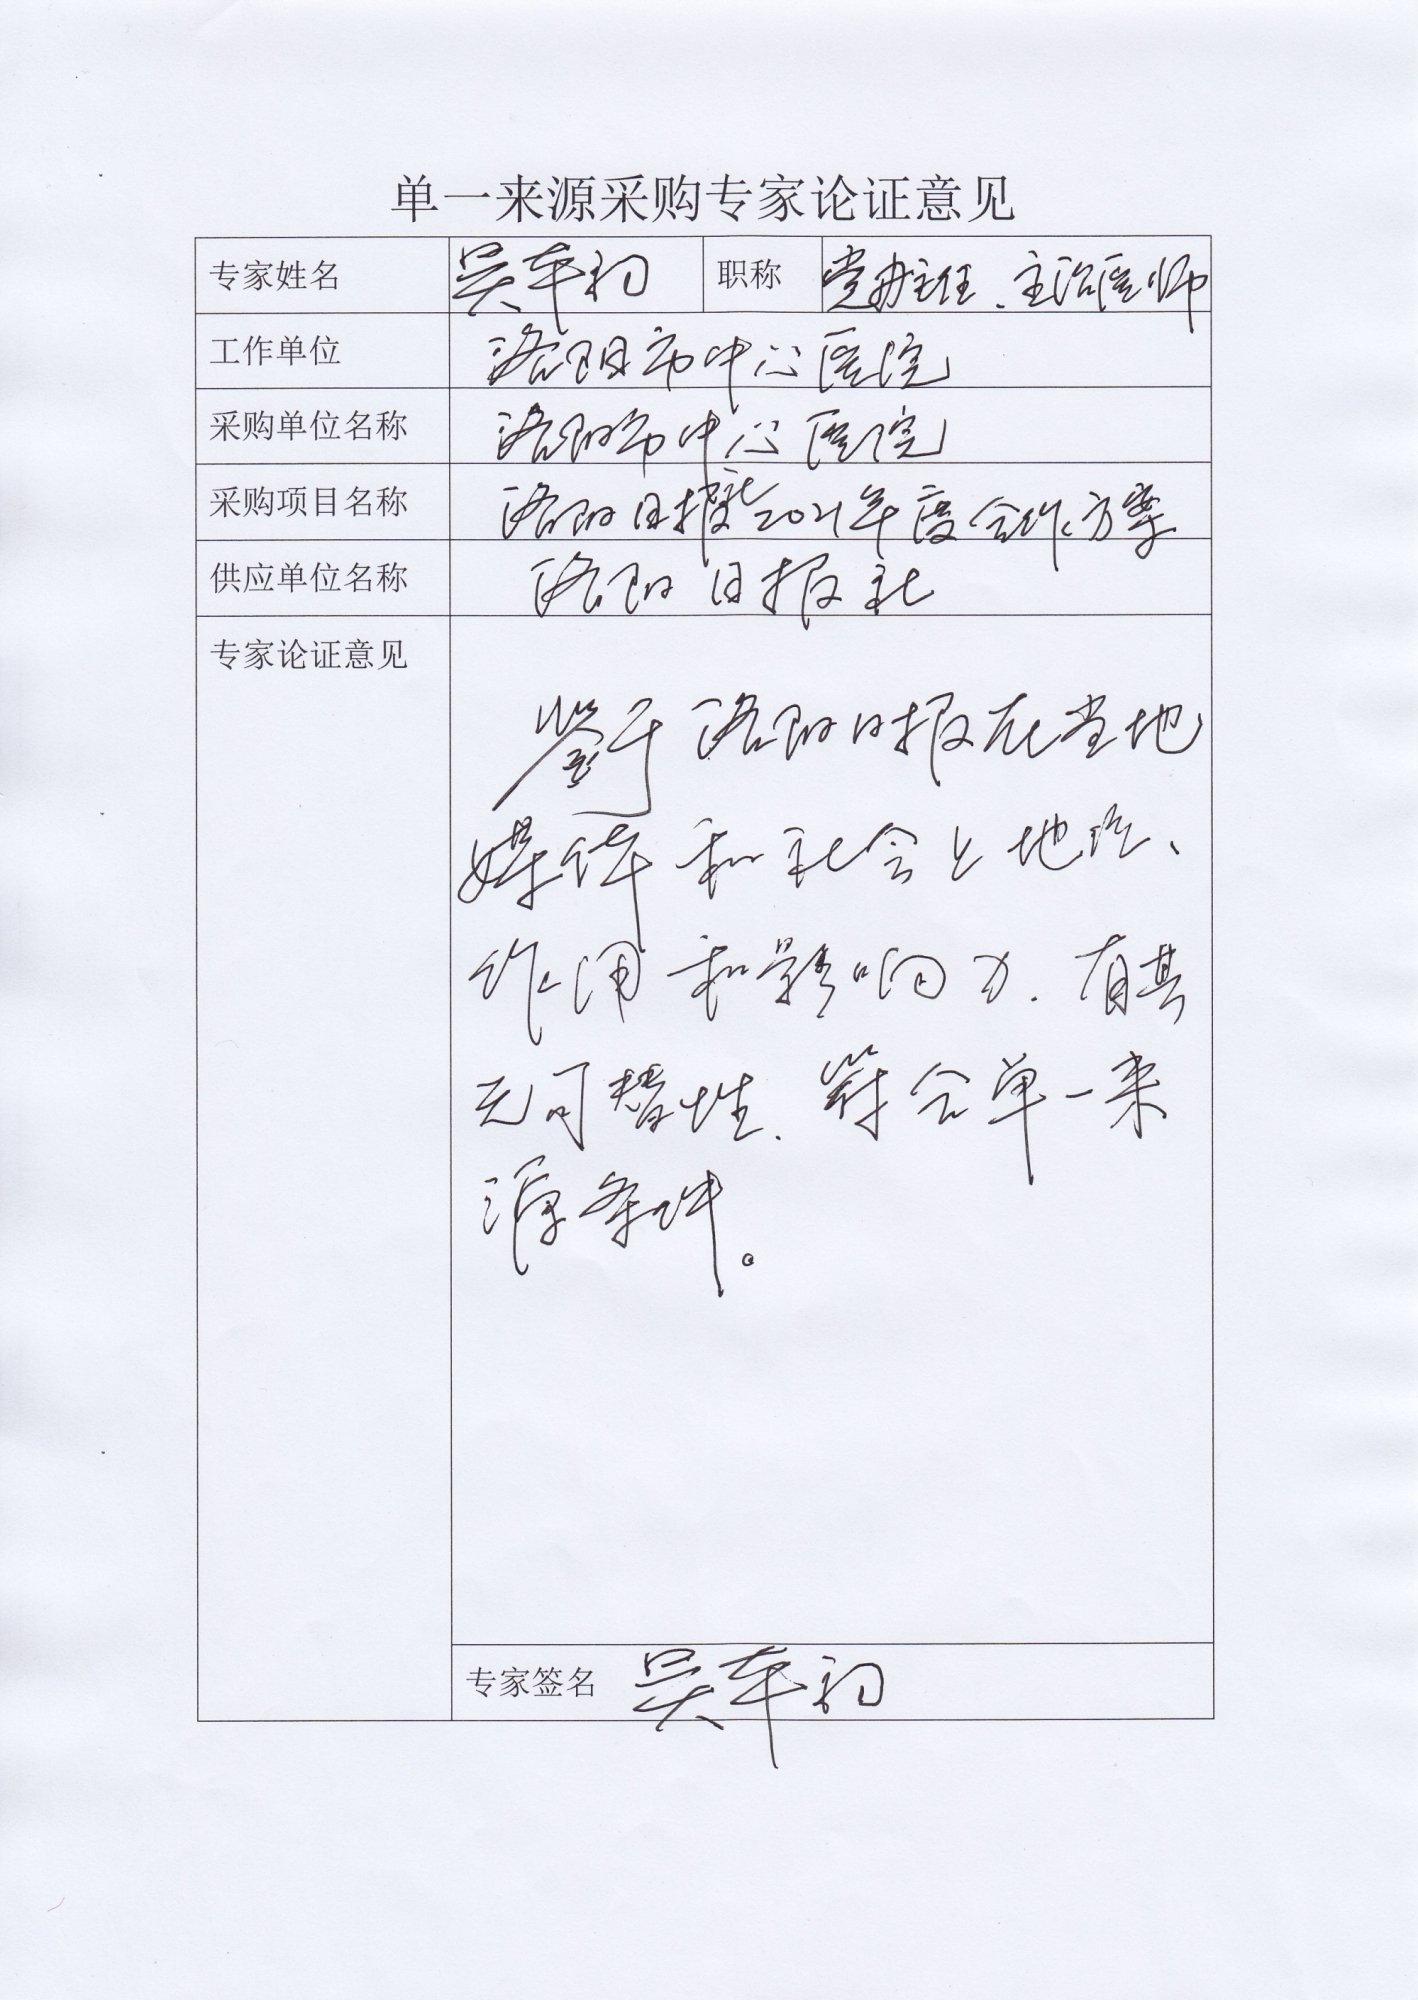 单一来源采购专家论证意见
专家姓名 吴车初 职称 党办主任、主治医师
工作单位 洛阳市中心医院
采购单位名称 洛阳市中心医院
采购项目名称 洛阳日报社2021年度合作方案
供应单位名称 洛阳日报社
专家论证意见
鉴于洛阳日报在当地
媒体和社会上地位、
作用和影响力、有其
无可替性、符合单一来
源条件。
专家签名 吴车初